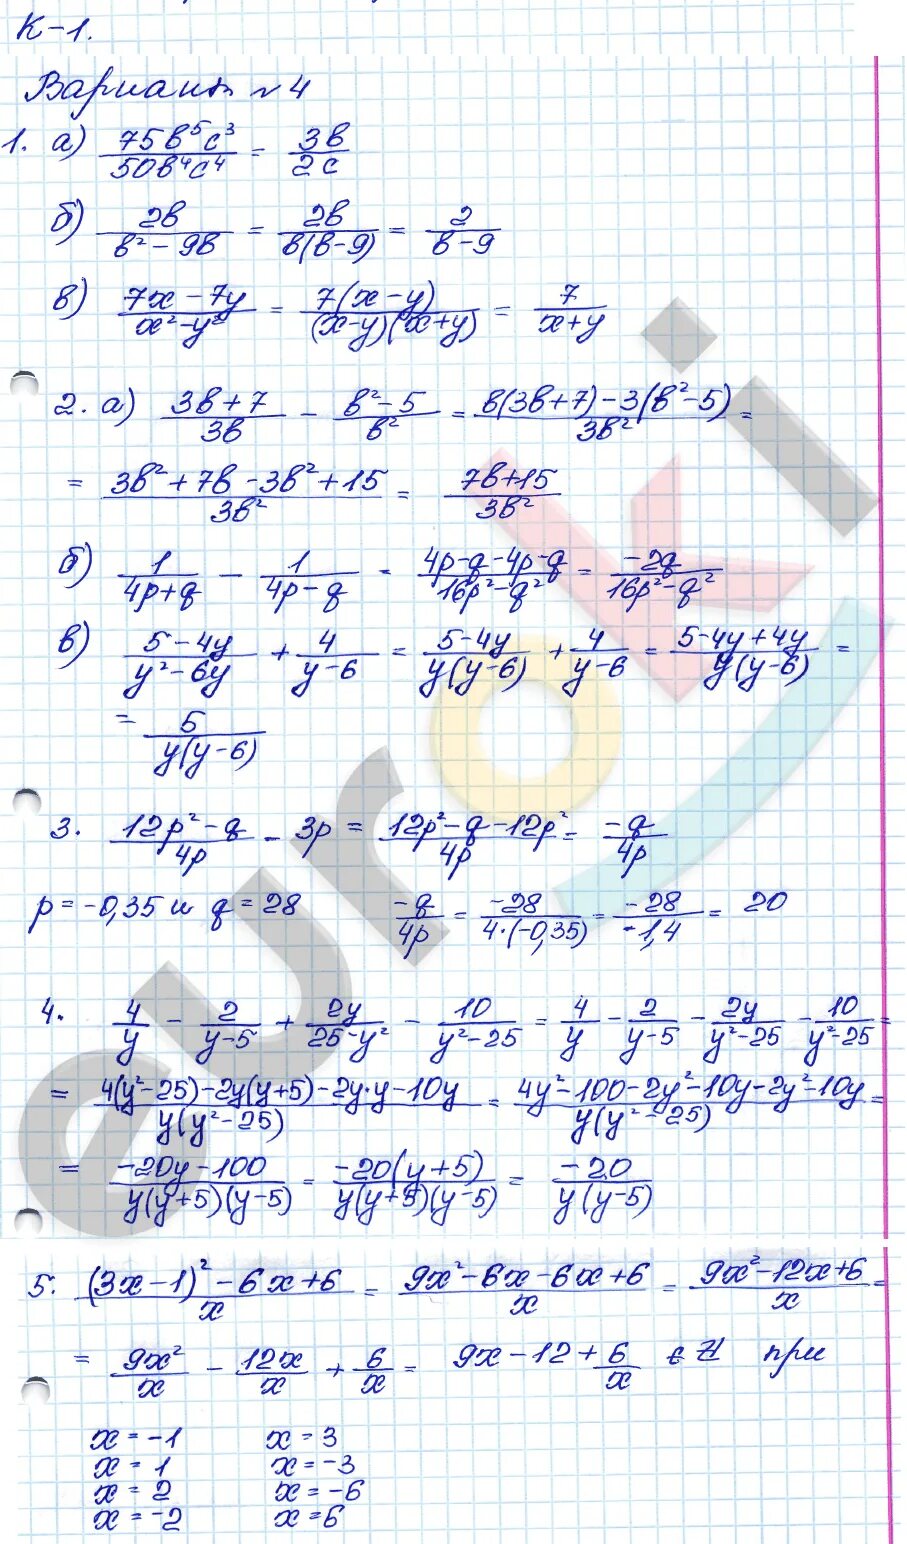 К-1.
Вариант №4
1. а) 75b⁵c³/50b⁴c⁴ = 3b/2c
б) 2b/(b² - 9b) = 2b/(b(b-9)) = 2/(b-9)
в) (7x - 7y)/(x² - y²) = 7(x-y)/((x-y)(x+y)) = 7/(x+y)
2. а) (3b+7)/3b - (b²-5)/b² = (b(3b+7)-3(b²-5))/3b² =
= (3b² + 7b - 3b² + 15)/3b² = (7b+15)/3b²
б) 1/(4p+q) - 1/(4p-q) = (4p-q-4p-q)/(16p²-q²) = -2q/(16p²-q²)
в) (5-4y)/(y²-6y) + 4/(y-6) = (5-4y)/(y(y-6)) + 4/(y-6) = (5-4y+4y)/(y(y-6)) =
= 5/(y(y-6))
3. (12p²-q)/4p - 3p = (12p²-q-12p²)/4p = -q/4p
p = -0,35 и q = 28 -q/4p = -28/(4·(-0,35)) = -28/-1,4 = 20
4. 4/y - 2/(y-5) + 2y/(25-y²) - 10/(y²-25) = 4/y - 2/(y-5) - 2y/(y²-25) - 10/(y²-25) =
= (4(y²-25)-2y(y+5)-2y·y-10y)/(y(y²-25)) = (4y²-100-2y²-10y-2y²-10y)/(y(y²-25)) =
= (-20y-100)/(y(y+5)(y-5)) = -20(y+5)/(y(y+5)(y-5)) = -20/(y(y-5))
5. ((3x-1)²-6x+6)/x = (9x²-6x-6x+6)/x = (9x²-12x+6)/x =
= 9x²/x - 12x/x + 6/x = 9x-12+6/x ∈ Z при
x = -1 x = 3
x = 1 x = -3
x = 2 x = -6
x = -2 x = 6
euroki